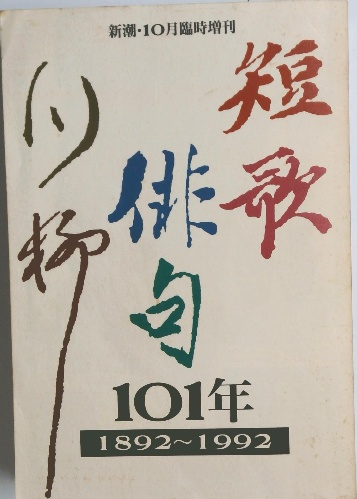 新潮・10月臨時増刊
短歌
俳句
川柳
101年
1892～1992